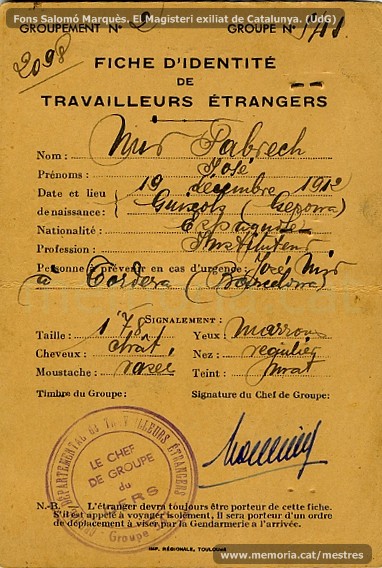 Fons Salomó Marquès. El Magisteri exiliat de Catalunya. (UdG)
GROUPEMENT N° 2 GROUPE N°
2098
FICHE D'IDENTITÉ
DE
TRAVAILLEURS ÉTRANGERS
Nom : Mir Pabrech
Prénoms : José
Date et lieu 19 décembre 1912
de naissance : (Gerona)
Nationalité : Espagnole
Profession :
Personne à prévenir en cas d'urgence : José Mir
à Tordera (Barcelona)
SIGNALEMENT :
Taille : 1 78 Yeux : marrons
Cheveux : chat. Nez : regulier
Moustache : rasee Teint : mat
Timbre du Groupe : Signature du Chef de Groupe :
DÉPARTEMENTAL de TRAVAILLEURS ÉTRANGERS
LE CHEF
DE GROUPE
du
GERS
Groupe
N.-B. — L'étranger devra toujours être porteur de cette fiche.
S'il est appelé à voyager isolément, il sera porteur d'un ordre
de déplacement à viser par la Gendarmerie à l'arrivée.
IMP. RÉGIONALE, TOULOUSE
www.memoria.cat/mestres